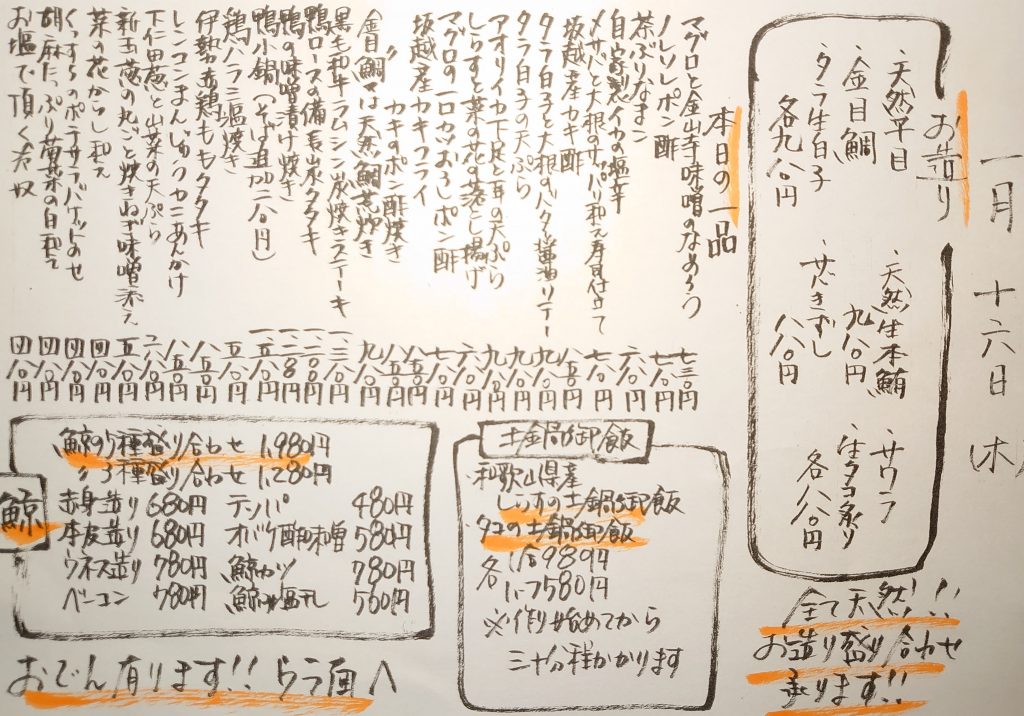 一月十六日
お造り
、天然平目
、金目鯛
、タラ生白子
各九八〇円
、天然生本鮪
九八〇円
、サバきずし
八八〇円
、サワラ
、生タコ炙り
各八八〇円
全て天然!!
お造り盛り合わせ
承ります!!
本日の一品
マグロと金山寺味噌のなめろう 七三〇円
ノレソレポン酢 七八〇円
茶ぶりなまこ 六八〇円
自家製イカの塩辛
〆サバと大根のサッパリ和え寿司仕立て 七八〇円
坂越産カキ酢 八五〇円
タラ白子と大根のバター醤油ソテー 九八〇円
タラ白子の天ぷら 九八〇円
アオリイカ下足と耳の天ぷら
しらすと菜の花の落とし揚げ 六八〇円
マグロの一口カツおろしポン酢 七八〇円
坂越産カキフライ 八五〇円
〃 カキのポン酢焼き 八五〇円
金目鯛又は天然鯛荒炊き 九八〇円
黒毛和牛ラムシン炭焼きステーキ
鴨ロースの備長炭タタキ
鴨の味噌漬け焼き
鴨小鍋(そば追加二八〇円)
鶏ハラミ塩焼き
伊勢赤鶏ももタタキ 八五〇円
レンコンまんじゅうカニあんかけ 八五〇円
下仁田葱と山菜の天ぷら 六八〇円
新玉葱の丸ごと焼きねぎ味噌添え 五八〇円
菜の花からし和え 四八〇円
くっさうのポテサラバゲットのせ 四八〇円
胡麻たっぷり菊菜の白和え 四八〇円
お塩で頂く冷奴 四八〇円
土鍋御飯
和歌山県産
しらすの土鍋御飯
タコの土鍋御飯
各 1合989円
1.5 1580円
※作り始めてから
三十分程かかります
鯨
鯨の5種盛り合わせ 1,980円
〃3種盛り合わせ 1,280円
赤身造り 680円
本皮造り 680円
ウネス造り 780円
ベーコン 780円
テッパ 480円
オバケ酢味噌 580円
鯨カツ 780円
鯨塩干し 560円
おでん有ります!! ウラ面へ